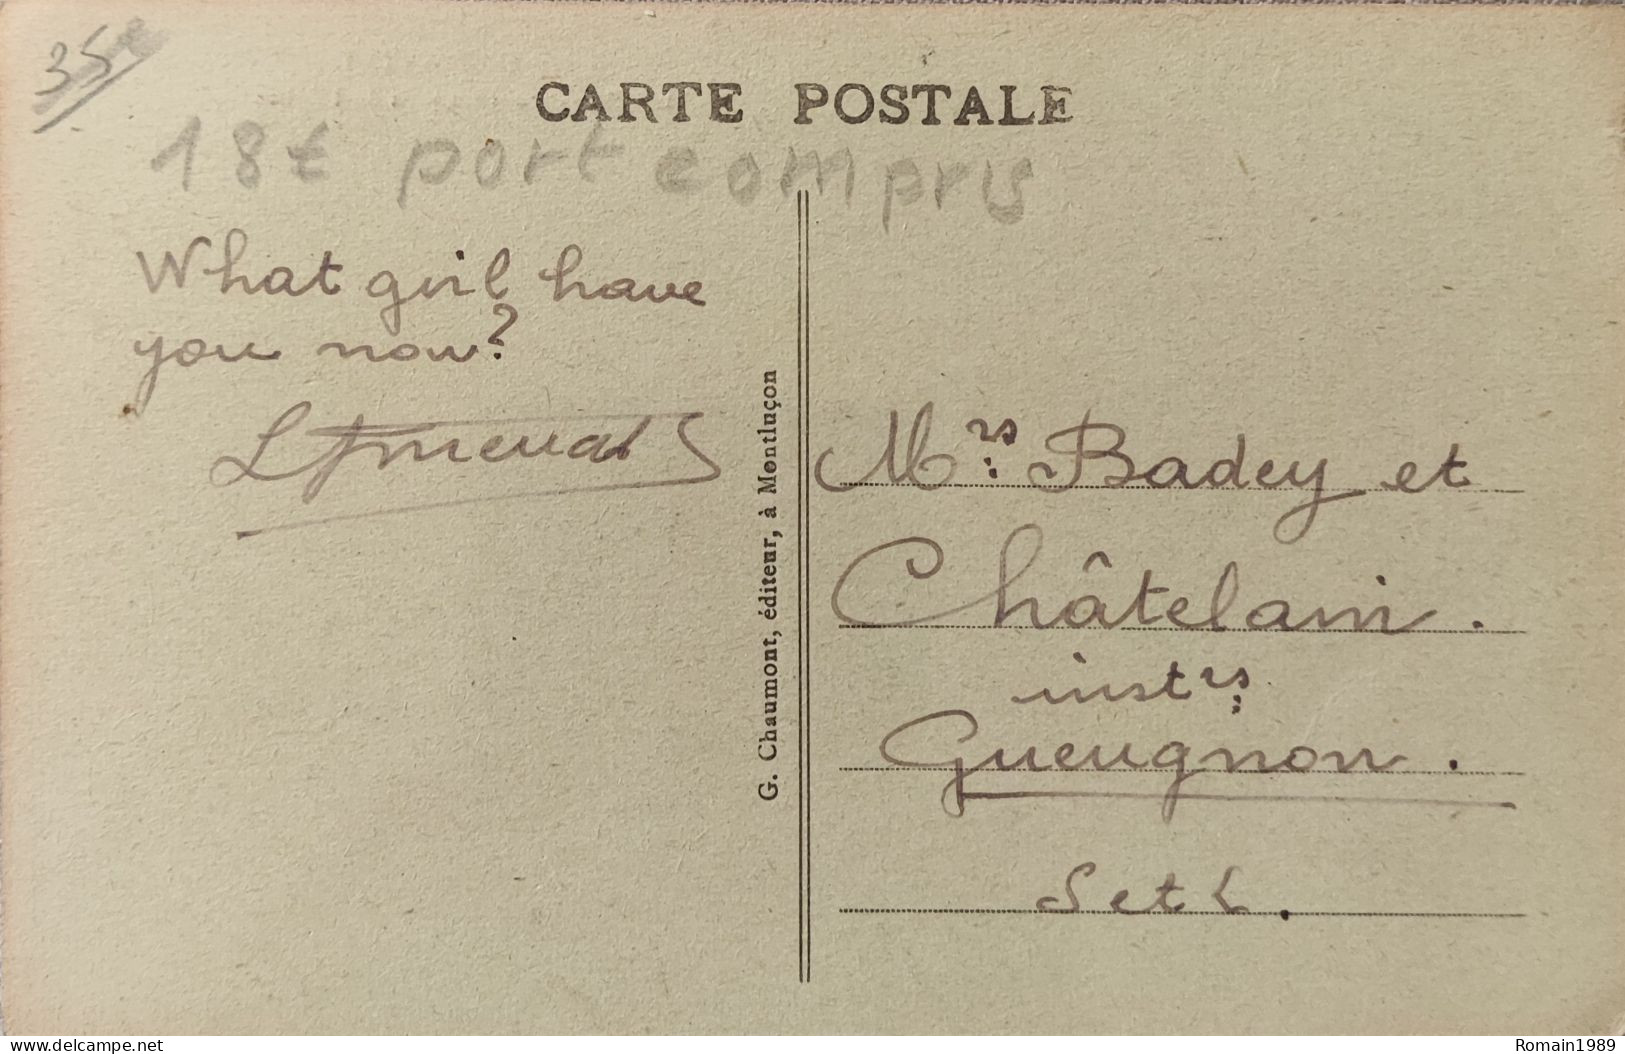 35€
CARTE POSTALE
18€ port compris
What girl have
you now?
G. Chaumont, éditeur, à Montluçon
Mrs. Badey et
Châtelain.
instrs
Gueugnon.
S et L.
www.delcampe.net
Romain1989